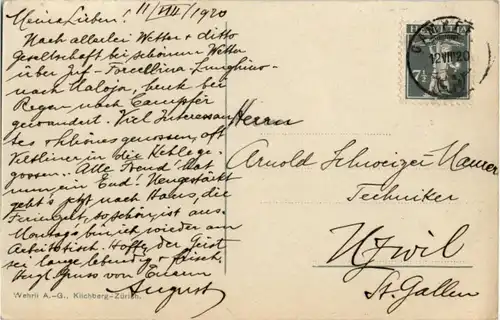 Meine Lieben! 11/VIII/1920
Nach allerlei Wetter + ditto
Gesellschaft bei schönem Wetter
über Juf-Forcellina-Lunghino-
nach Maloja, heute bei
Regen nach Campfèr
gewandert. Viel Interessan
tes + Schönes genossen, oft
Veltliner in die Kehle ge-
gossen. Alle Freud hat
nun ein End! Neugestärkt
geht's jetzt nach Haus, die
Ferienzeit, so schön, ist aus.
Montags bin ich wieder am
Arbeitstisch. Hoffe, der Geist
sei lange lebendig + frisch,
Herzl. Gruss von Eurem
August
Wehrli A.-G., Kilchberg-Zürich.
12.VIII.20
Herrn
Arnold Schweizer-Maurer
Techniker
Uzwil
St. Gallen